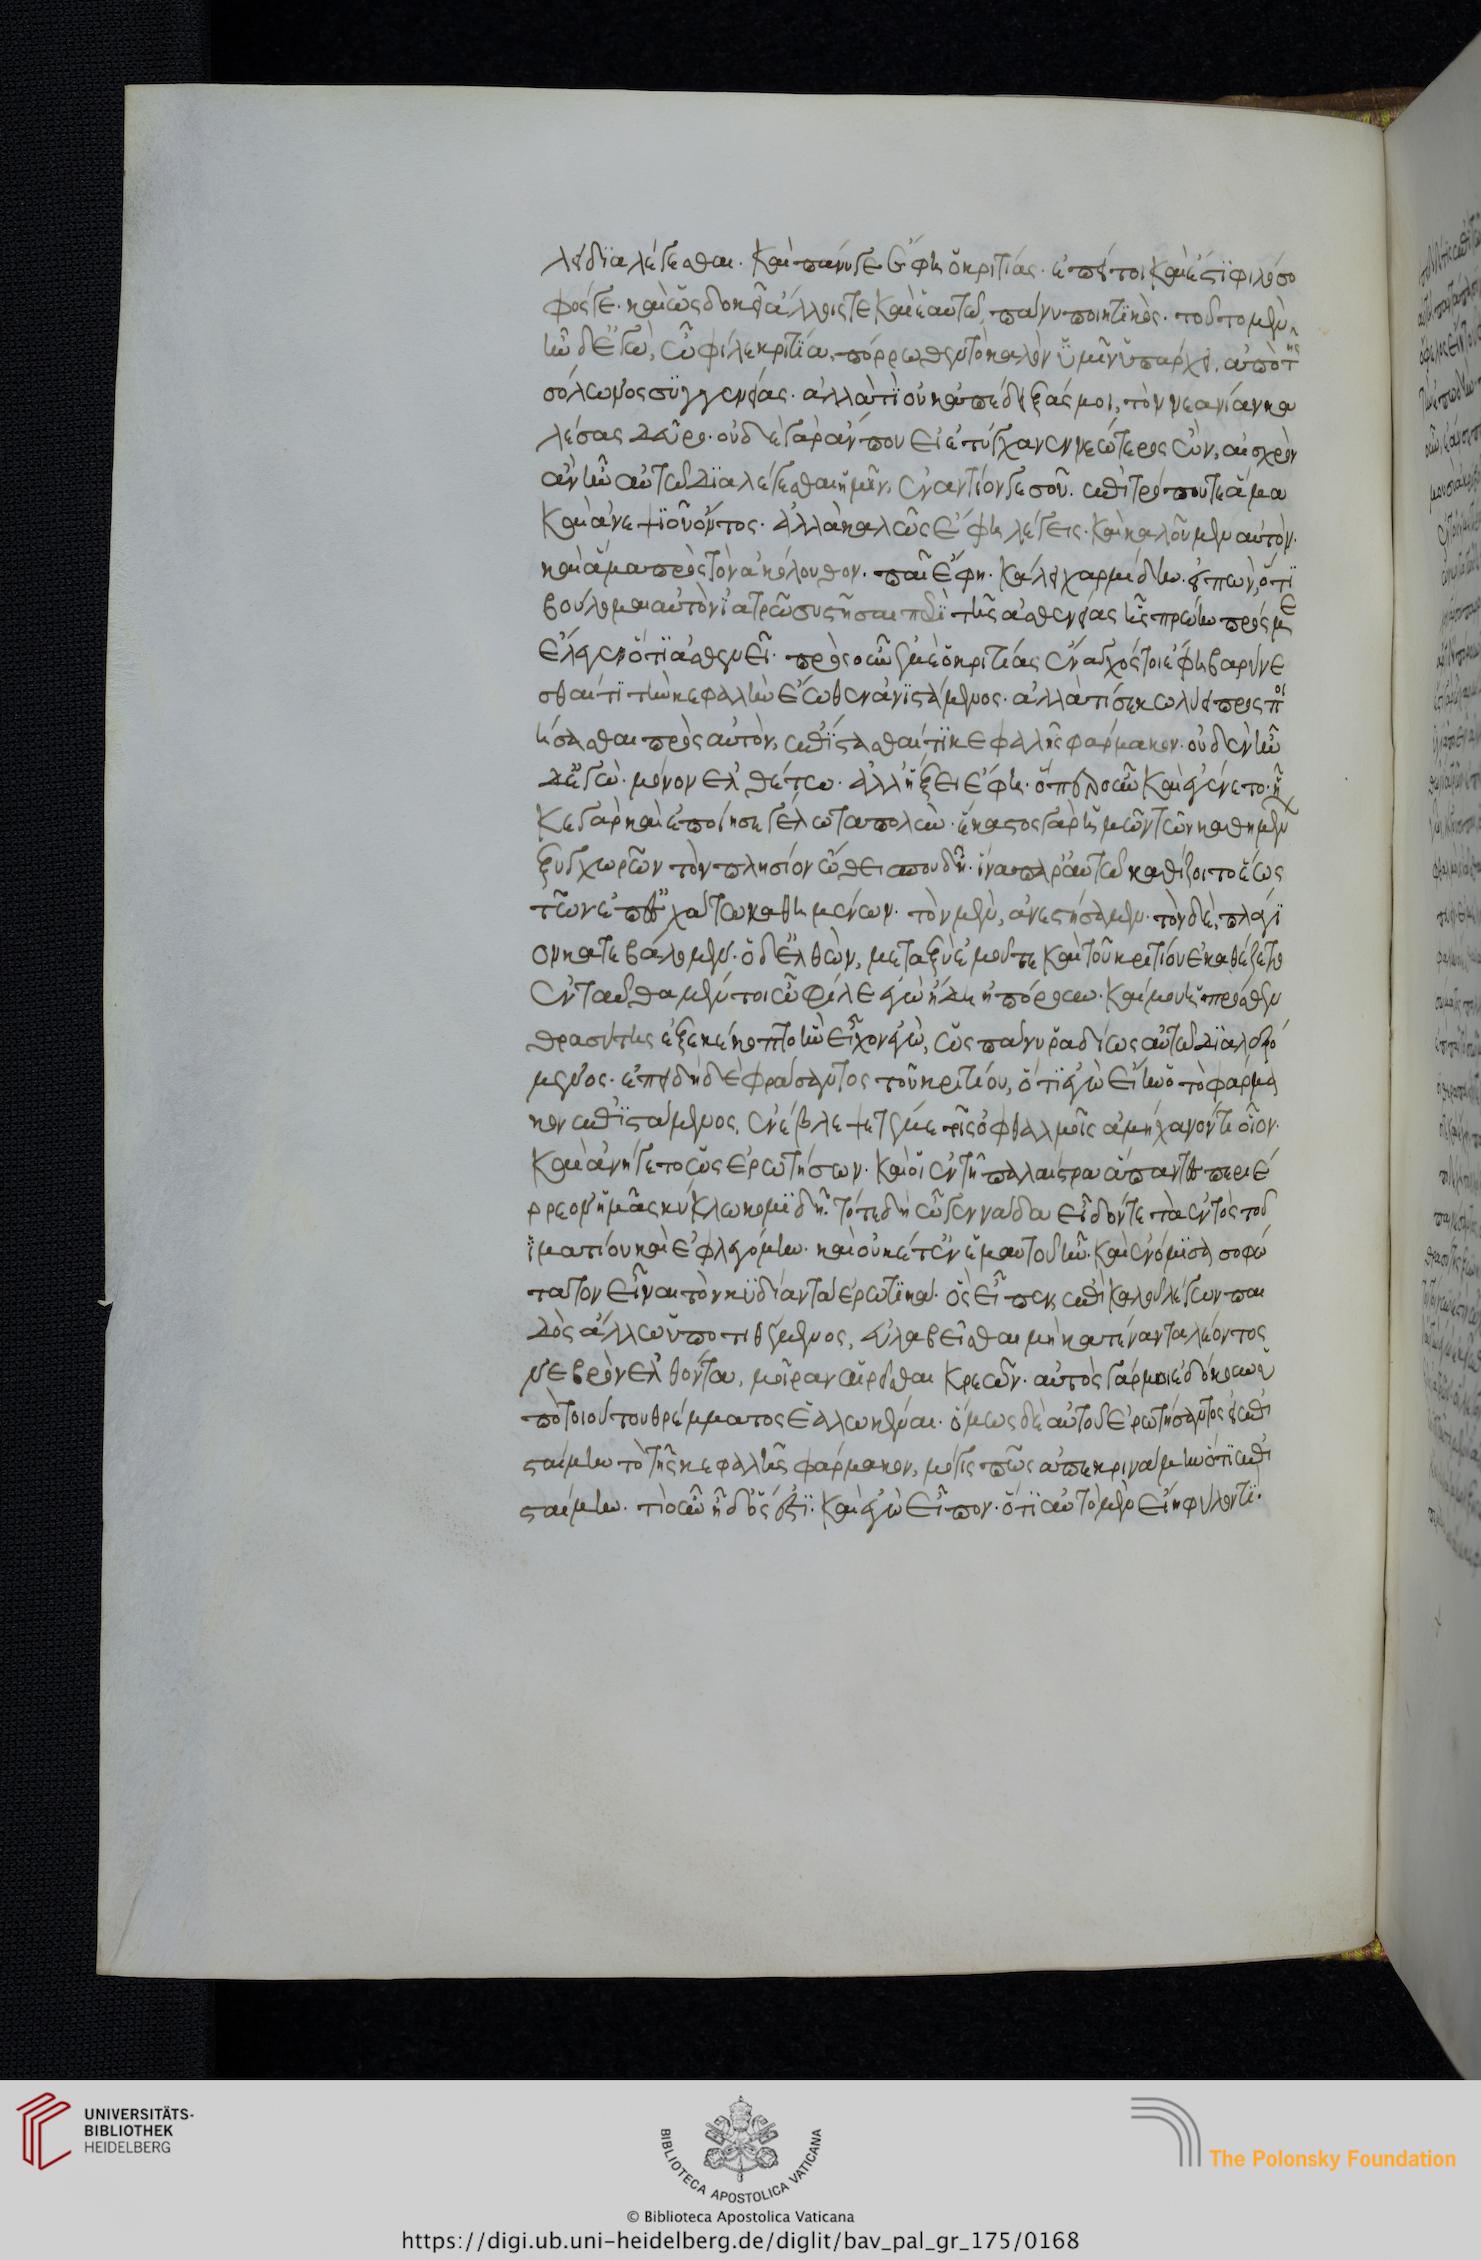 λει διαλέγεσθαι. καὶ πάνυ γε ἔφη ὁ κριτίας. ἐπεί τοι καὶ ἔστι φιλόσο
φός τε. καὶ ὡς δοκεῖ ἄλλοις τε καὶ ἑαυτῶ, πάνυ ποιητικός. τοῦτο μὲν
ἦν δ' ἐγὼ, ὦ φίλε κριτία, πόρρωθεν τὸ καλὸν ὑμῖν ὑπάρχει. ἀπὸ τῆς
σόλωνος συγγενείας. ἀλλὰ τί οὐκ ἀπέδειξάς μοι, τὸν νεανίαν κα
λέσας δεῦρο. οὐδὲ γὰρ ἄν που εἰ ἐτύγχανεν νεώτερος ὢν, αἰσχρὸν
ἂν ἦν αὐτῶ διαλέγεσθαι ἡμῖν, ἐναντίον γε σοῦ. ἐπιτρόπου τε ἅμα
καὶ ἀνεψιοῦ ὄντος. ἀλλὰ καλῶς ἔφη λέγεις. καὶ καλοῦμεν αὐτόν.
καὶ ἅμα πρὸς τὸν ἀκόλουθον. παῖ ἔφη. κάλει χαρμίδην. εἰπὼν, ὅτι
βούλομαι αὐτὸν ἰατρῶ συστῆσαι περὶ τῆς ἀσθενείας ἧς πρώην πρός με
ἔλεγεν ὅτι ἀσθενεῖ. πρὸς οὖν ἐμὲ ὁ κριτίας ἔναγχός τοι ἔφη βαρύνε
σθαί τι τὴν κεφαλὴν ἕωθεν ἀνιστάμενος. ἀλλὰ τί σε κωλύει προσποι
ήσασθαι πρὸς αὐτὸν, ἐπίστασθαί τι κεφαλῆς φάρμακον. οὐδὲν ἦν
δ' ἐγώ. μόνον ἐλθέτω. ἀλλ' ἥξει ἔφη. ὅπερ οὖν καὶ ἐγένετο. ἧ
κε γὰρ καὶ ἐποίησε γέλωτα πολύν. ἕκαστος γὰρ ἡμῶν τῶν καθημένων
ξυγχωρῶν τὸν πλησίον ὤθει σπουδῆ. ἵνα παρ' αὐτῶ καθίζοιτο ἕως
τῶν ἐπ' ἐσχάτω καθημένων. τὸν μὲν, ἀνεστήσαμεν. τὸν δὲ, πλάγι
ον κατεβάλομεν. ὁ δ' ἐλθὼν, μεταξὺ ἐμοῦ τε καὶ τοῦ κριτίου ἐκαθέζετο
ἐνταῦθα μέντοι ὦ φίλε ἐγὼ ἤδη ἠπόρουν. καί μου ἡ πρόσθεν
θρασύτης ἐξεκέκοπτο ἣν εἶχον ἐγὼ, ὡς πάνυ ῥαδίως αὐτῶ διαλεξό
μενος. ἐπειδὴ δὲ φράσαντος τοῦ κριτίου, ὅτι ἐγὼ εἴην ὁ τὸ φάρμα
κον ἐπιστάμενος, ἐνέβλεψέ τέ με τοῖς ὀφθαλμοῖς ἀμήχανόν τι οἷον.
καὶ ἀνήγετο ὡς ἐρωτήσων. καὶ οἱ ἐν τῆ παλαίστρα ἅπαντες περιέ
ρρεον ἡμᾶς κύκλω κομιδῆ. τότε δὴ ὦ γεννάδα εἶδόν τε τὰ ἐντὸς τοῦ
ἱματίου καὶ ἐφλεγόμην. καὶ οὐκέτ' ἐν ἐμαυτοῦ ἦν. καὶ ἐνόμισα σοφώ
τατον εἶναι τὸν κυδίαν τὰ ἐρωτικά. ὃς εἶπεν ἐπὶ καλοῦ λέγων παι
δὸς ἄλλω ὑποτιθέμενος, εὐλαβεῖσθαι μὴ κατέναντα λέοντος
νεβρὸν ἐλθόντα, μοῖραν αἱρεῖσθαι κρεῶν. αὐτὸς γάρ μοι ἐδόκουν ὑ
πὸ τοιούτου θρέμματος ἑαλωκέναι. ὅμως δὲ αὐτοῦ ἐρωτήσαντος εἰ ἐπι
σταίμην τὸ τῆς κεφαλῆς φάρμακον, μόγις πῶς ἀπεκρινάμην ὅτι ἐπι
σταίμην. τί οὖν ἦ δ' ὅς ἐστι. καὶ ἐγὼ εἶπον. ὅτι αὐτὸ μὲν εἴη φύλλόν τι.
UNIVERSITÄTS-
BIBLIOTHEK
HEIDELBERG
BIBLIOTECA APOSTOLICA VATICANA
The Polonsky Foundation
© Biblioteca Apostolica Vaticana
https://digi.ub.uni-heidelberg.de/diglit/bav_pal_gr_175/0168